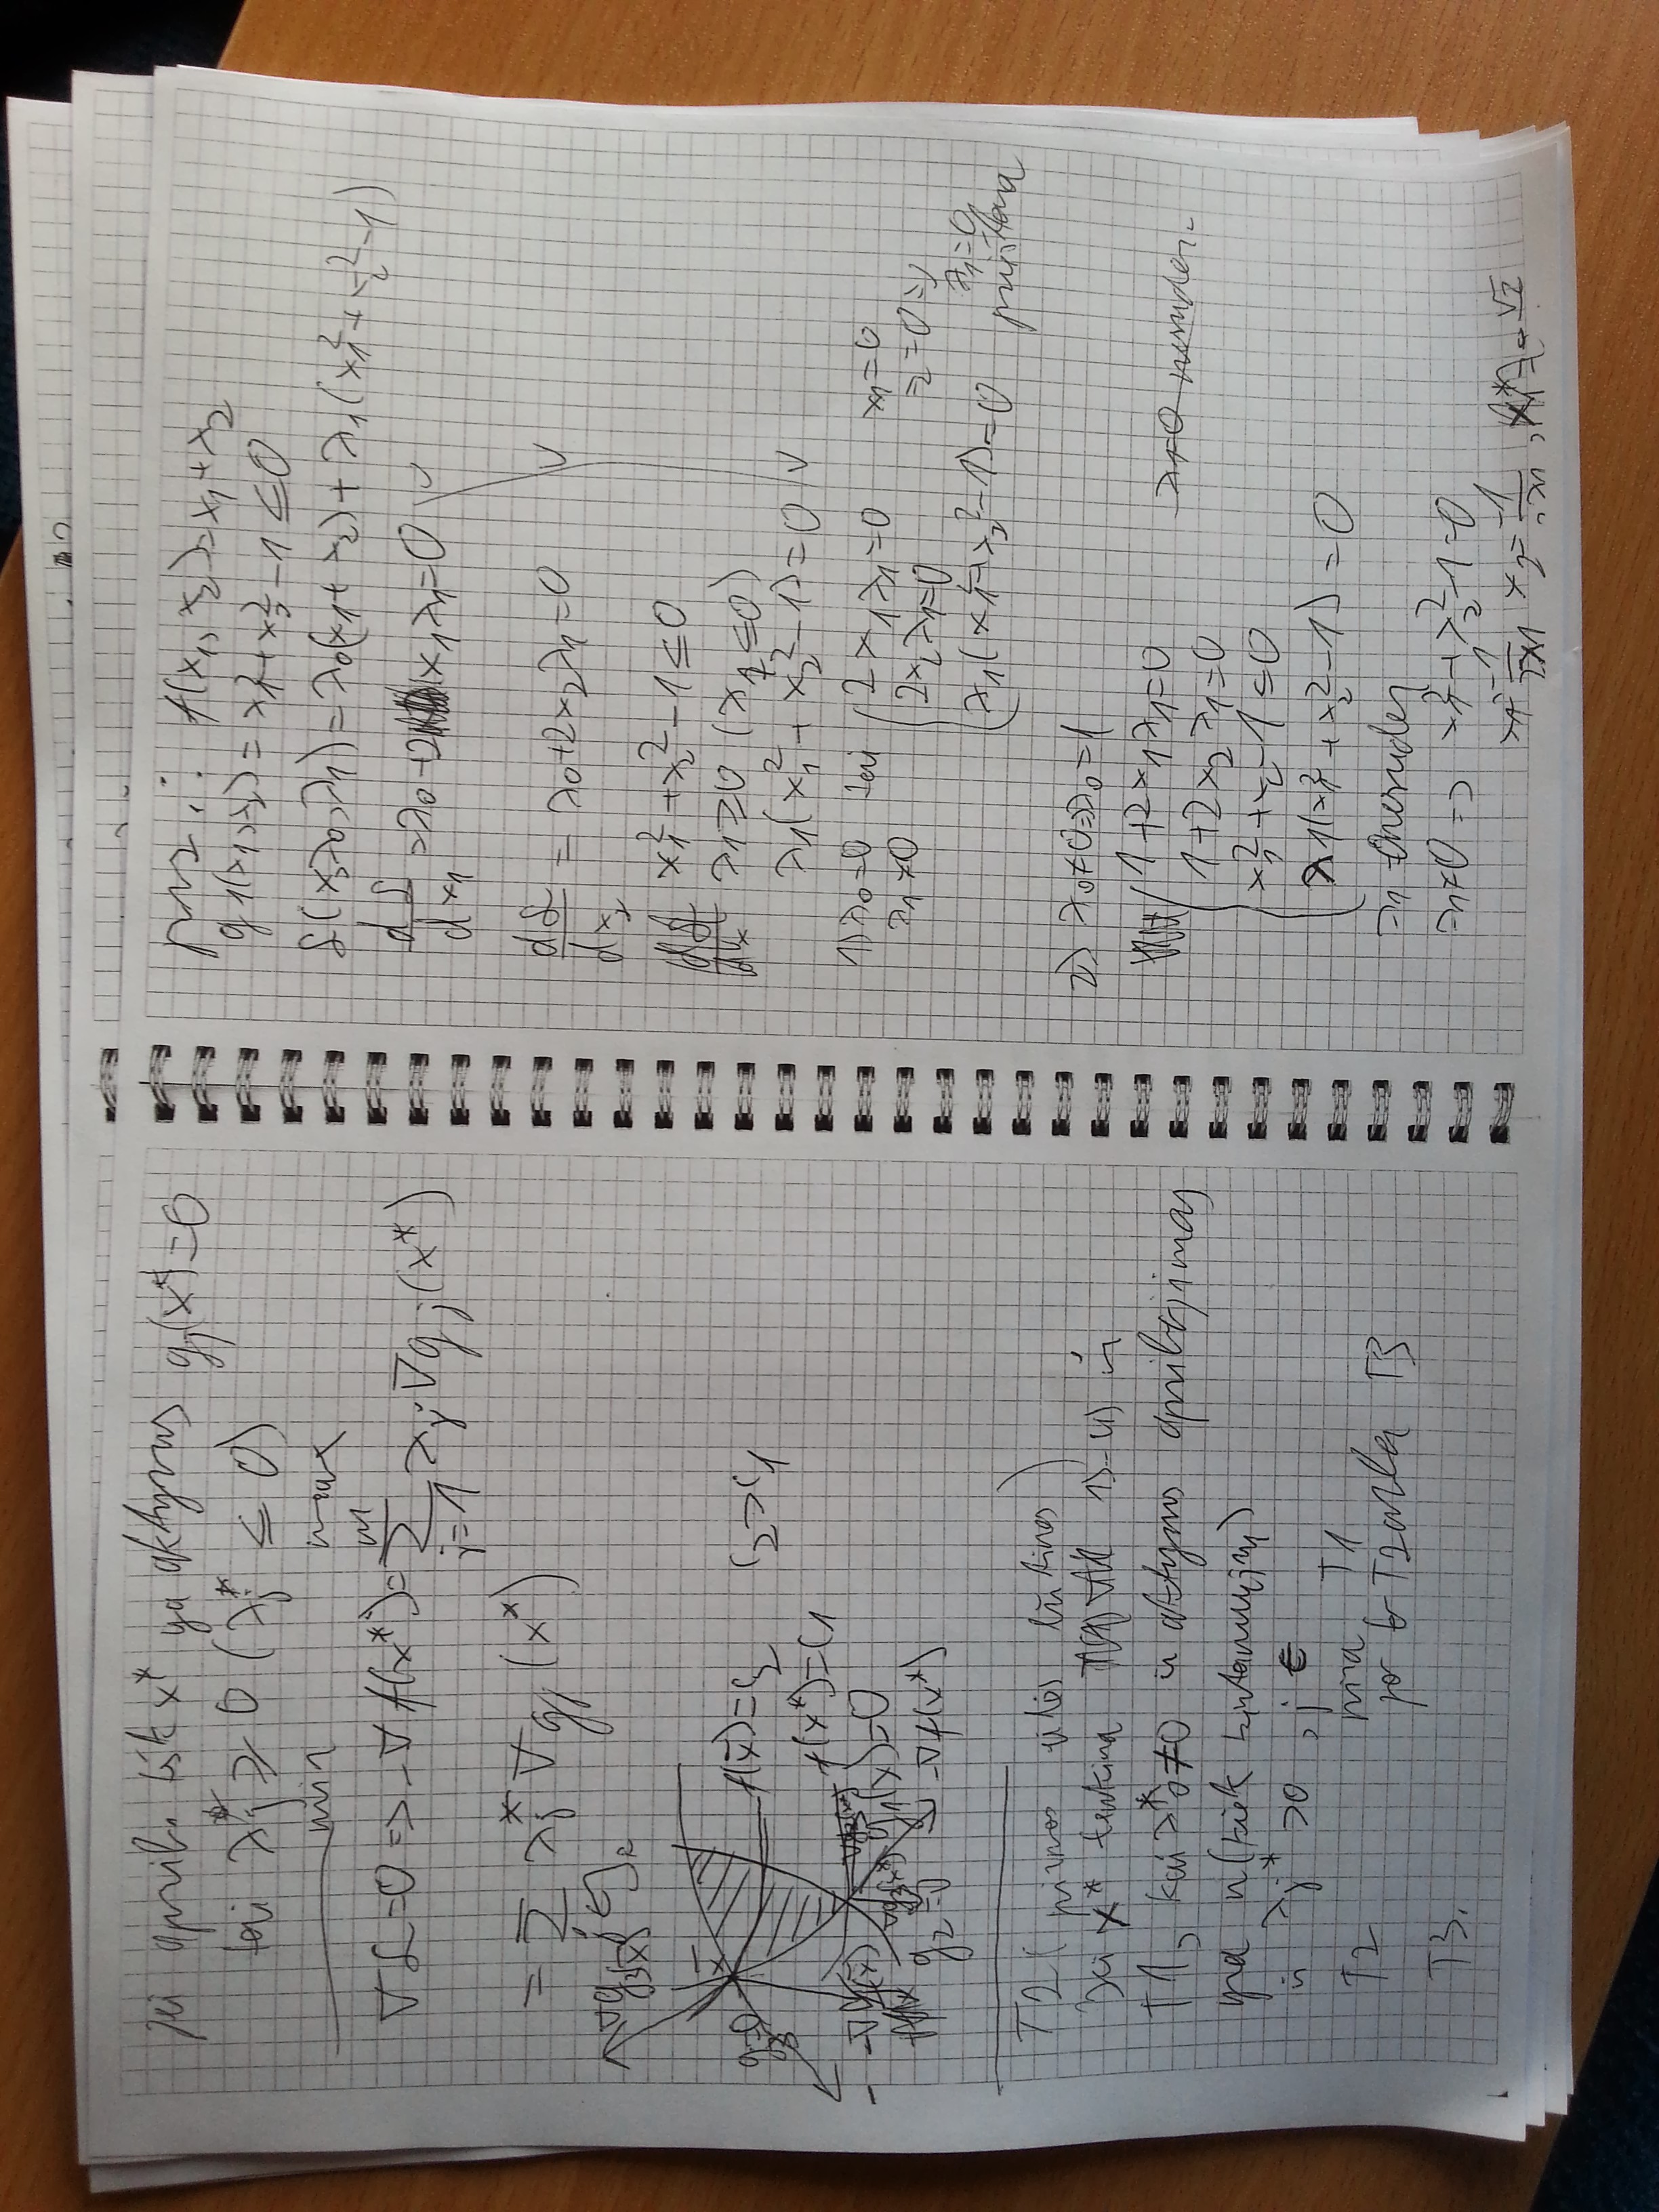 Jei aprib. tšk x* yra aktyvus g_j(x*)=0
tai λ_j* ≥ 0 (λ_j* ≤ 0)
min max
∇ℒ=0 => -∇f(x*)= Σ_{j=1}^{m} λ_j ∇g_j(x*)
= Σ λ_j* ∇g_j(x*)
∇g_3(x̄) j∈J_a
x̄
g_3=0
f(x̄)=c_2 c_2>c_1
f(x*)=c_1
-∇f(x̄) ∇g_3(x*) g_1(x)=0
g_2=0 -∇f(x*)
T2 (pirmos eilės būtinos)
Jei x* tenkina 1)-4) ir
T1, kai λ_0*≠0 ir aktyvus apribojimas
yra n (kiek kintamųjų)
ir λ_j* >0, j ∈
T2 nėra T1
T2 arba T3
T3.
pvz.: f(x_1, x_2)=x_1+x_2
g_1(x_1,x_2)= x_1^2+x_2^2-1 ≤0
ℒ(x,λ_0,λ_1)=λ_0(x_1+x_2)+λ_1(x_1^2+x_2^2-1)
dℒ/dx_1 =λ_0+2x_1λ_1=0
dℒ/dx_2 = λ_0+2x_2λ_1=0
x_1^2+x_2^2-1≤0
λ_1≥0 (λ_1≤0)
λ_1(x_1^2+x_2^2-1)=0
1) λ_0=0 tai 2x_1λ_1=0 x_1=0
λ_1≠0 2x_2λ_1=0 x_2=0 =>
λ_1(x_1^2+x_2^2-1)=0 λ_1=0, prieštara
2) λ_0≠0 => λ_0=1
1+2x_1λ_1=0 λ_1=0 netinka.
1+2x_2λ_1=0
x_1^2+x_2^2-1≤0
λ_1(x_1^2+x_2^2-1)=0
λ_1=0
λ_1≠0 => x_1^2+x_2^2-1=0
x_1=-1/2λ_1 x_2=-1/2λ_1,